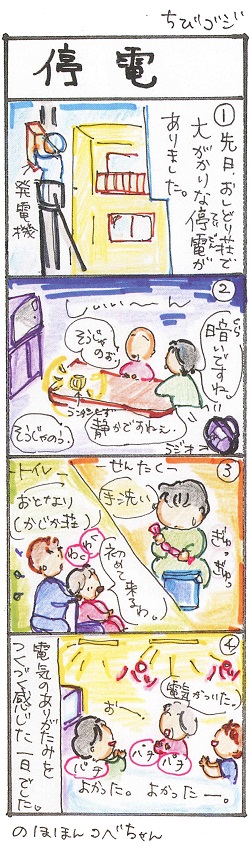 ちびゴジ
停電
①先日、おしどり荘で
大がかりな停電が
ありました。
発電機
②
しぃぃーん
暗いですね。
そうじゃのお。
静かですねぇ。
そうじゃのう。
ランタンともす
ラジオ→
③
せんたく
手洗い
ぎゅっぎゅっ
トイレ
おとなり
しかじか荘
わくわく
初めて来るわ。
④
パッ
パッ
電気がついた。
おー。
パチ
パチ
パチ
よかった。
よかったー。
電気のありがたみを
つくづく感じた一日でした。
のほほんコベちゃん